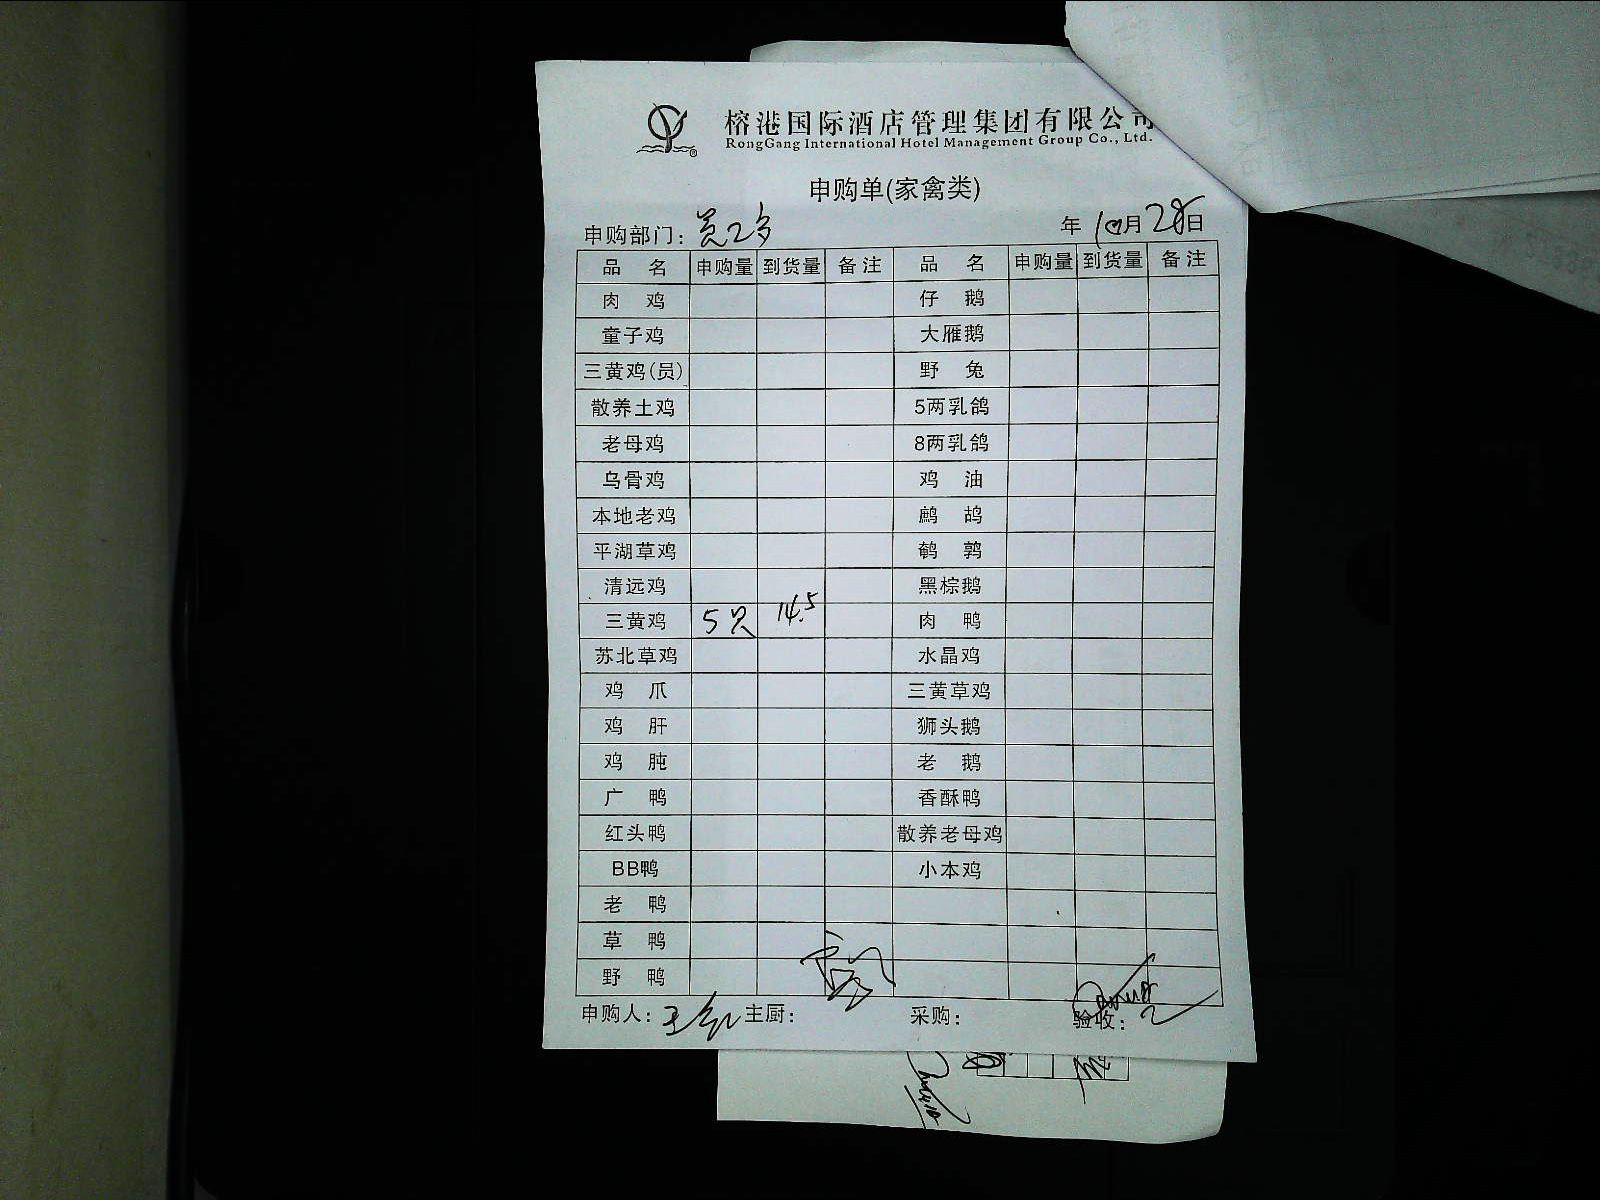 榕港国际酒店管理集团有限公司
RongGang International Hotel Management Group Co., Ltd.
申购单(家禽类)
申购部门: 年 10月 28日
品 名 申购量 到货量 备注 品 名 申购量 到货量 备注
肉 鸡 仔 鹅
童子鸡 大雁鹅
三黄鸡(员) 野 兔
散养土鸡 5两乳鸽
老母鸡 8两乳鸽
乌骨鸡 鸡 油
本地老鸡 鹧 鸪
平湖草鸡 鹌 鹑
清远鸡 黑棕鹅
三黄鸡 5只 14.5 肉 鸭
苏北草鸡 水晶鸡
鸡 爪 三黄草鸡
鸡 肝 狮头鹅
鸡 肫 老 鹅
广 鸭 香酥鸭
红头鸭 散养老母鸡
BB鸭 小本鸡
老 鸭
草 鸭
野 鸭
申购人: 主厨: 采购: 验收: